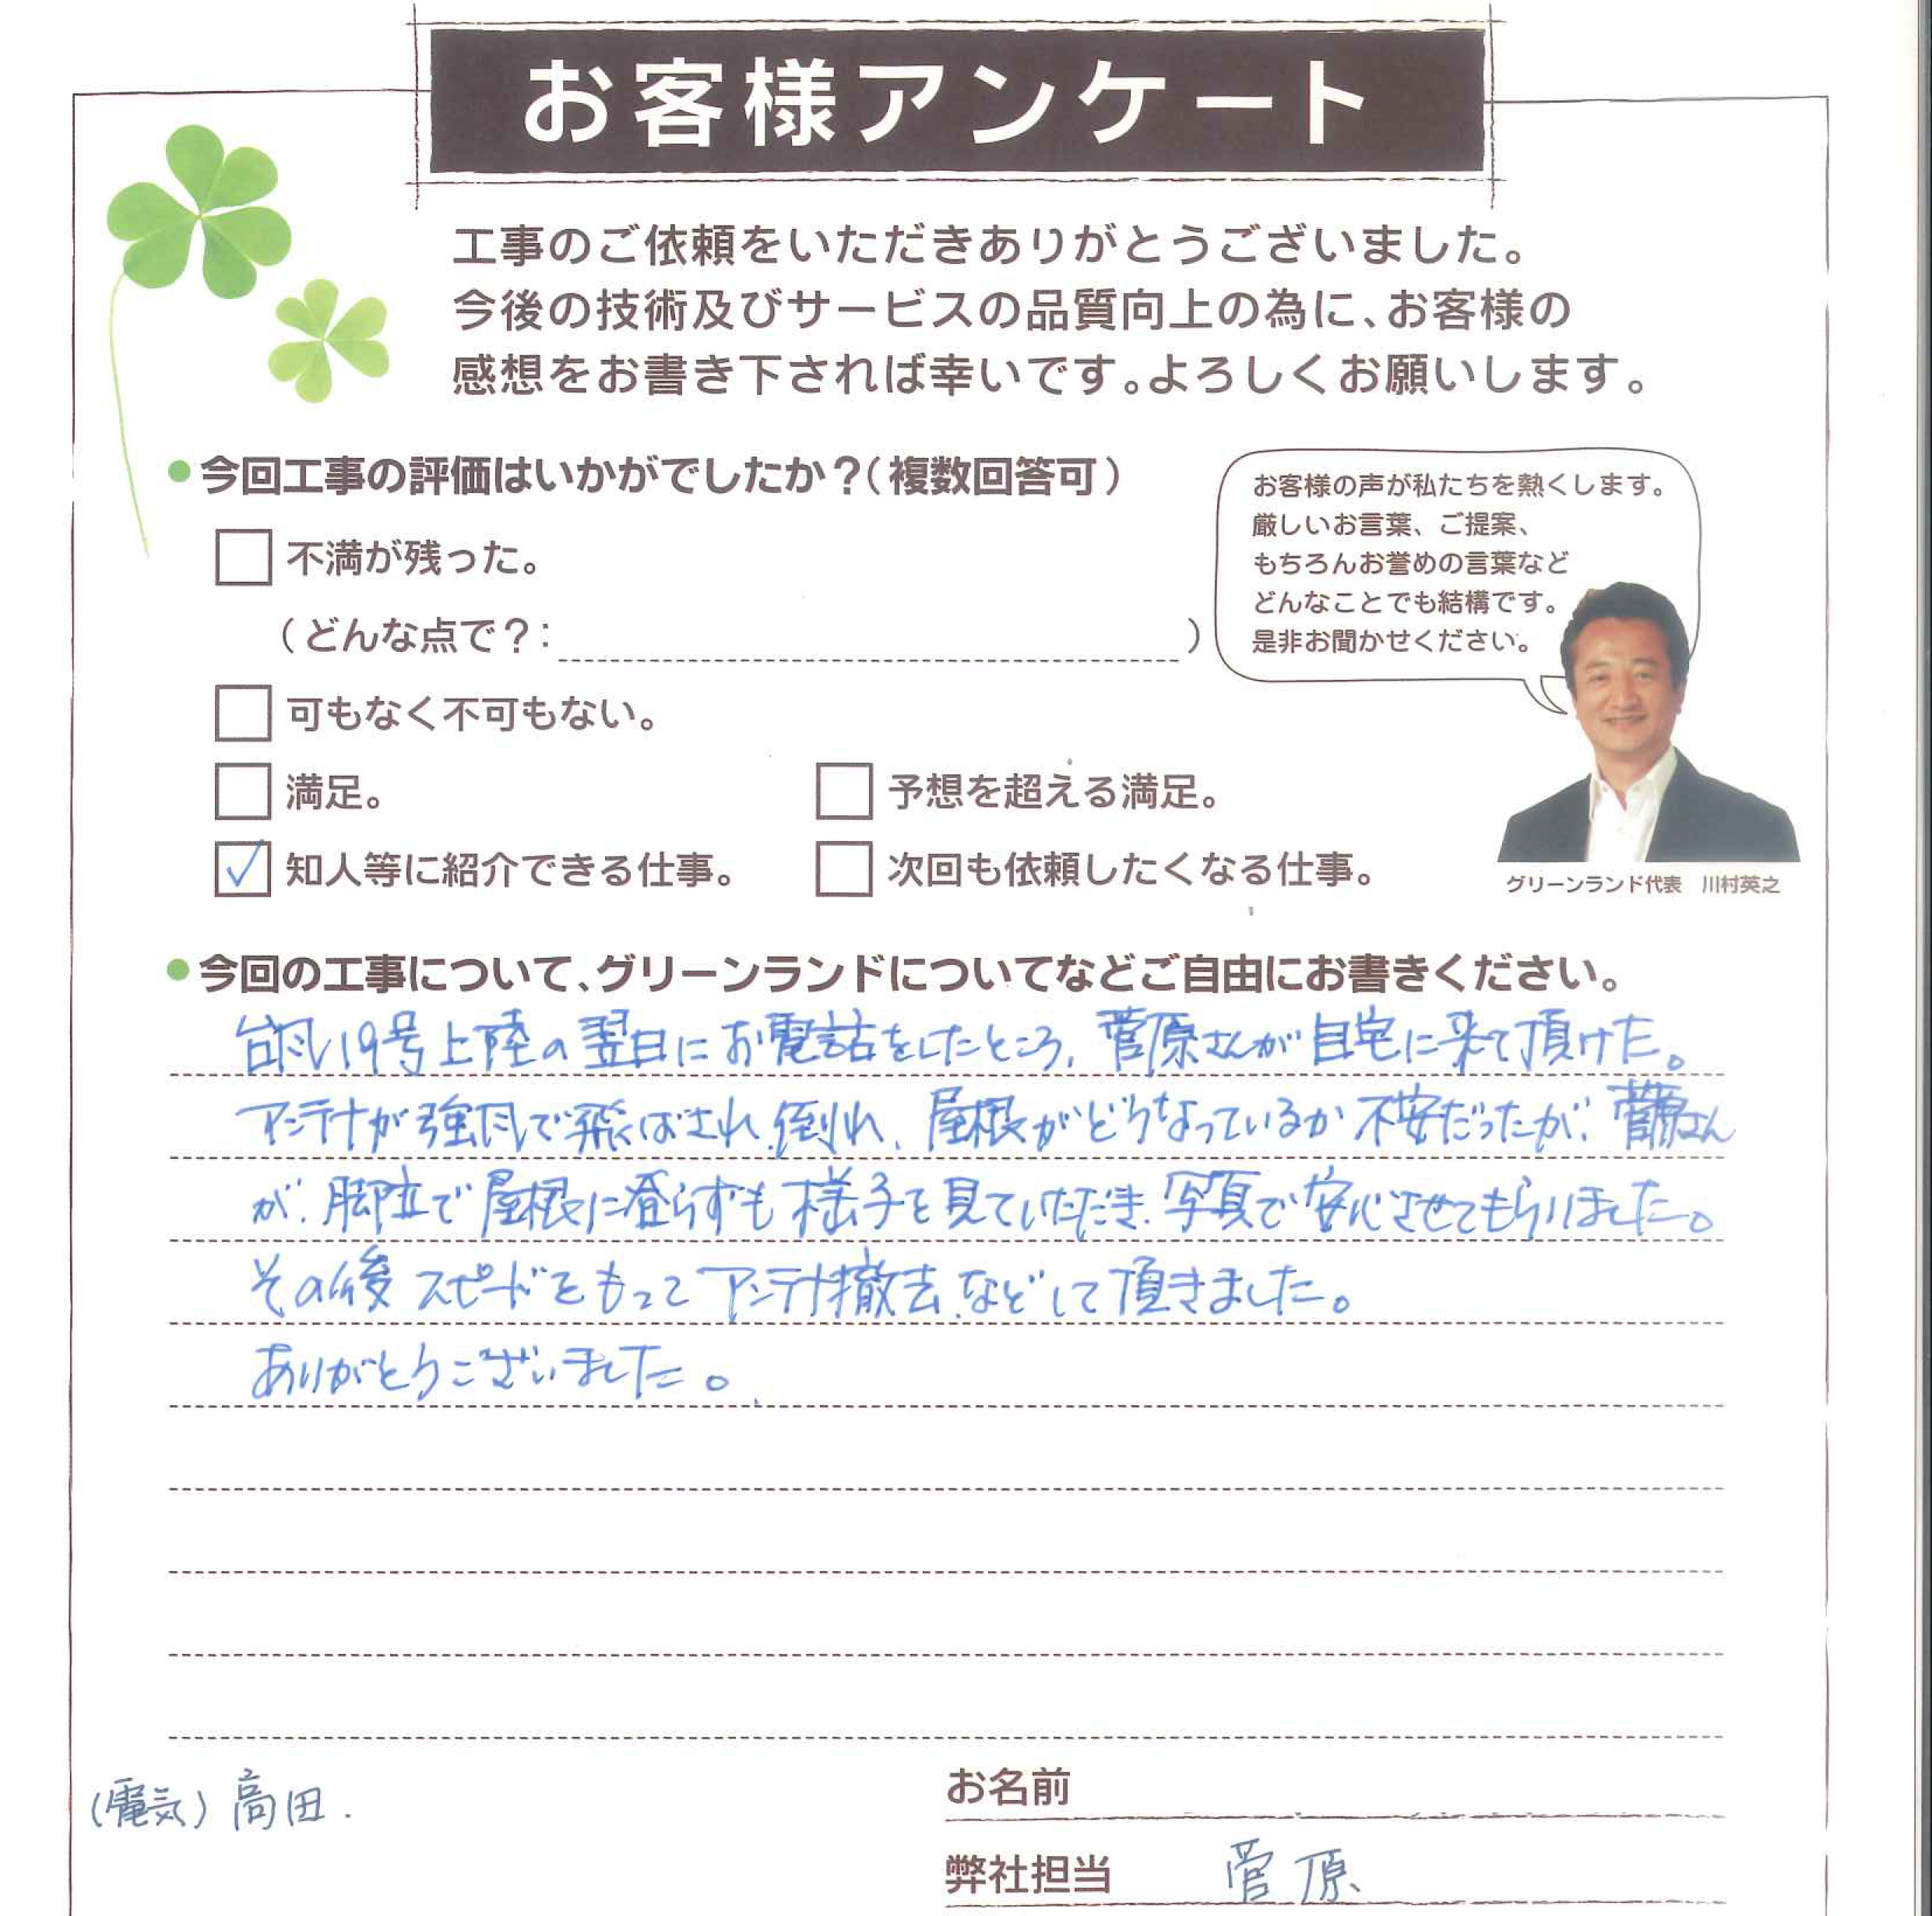 お客様アンケート
工事のご依頼をいただきありがとうございました。
今後の技術及びサービスの品質向上の為に、お客様の
感想をお書き下されば幸いです。よろしくお願いします。
●今回工事の評価はいかがでしたか？（複数回答可）
不満が残った。
（どんな点で？：　）
可もなく不可もない。
満足。
予想を超える満足。
✓知人等に紹介できる仕事。
次回も依頼したくなる仕事。
お客様の声が私たちを熱くします。
厳しいお言葉、ご提案、
もちろんお誉めの言葉など
どんなことでも結構です。
是非お聞かせください。
グリーンランド代表　川村英之
●今回の工事について、グリーンランドについてなどご自由にお書きください。
台風19号上陸の翌日にお電話をしたところ、菅原さんが自宅に来て頂けた。
アンテナが強風で飛ばされ、倒れ、屋根がどうなっているか不安だったが、菅原さん
が、脚立で屋根に登らずも様子を見ていただき、写真で安心させてもらいました。
その後スピードをもってアンテナ撤去、などして頂きました。
ありがとうございました。
（電気）高田.
お名前
弊社担当　菅原